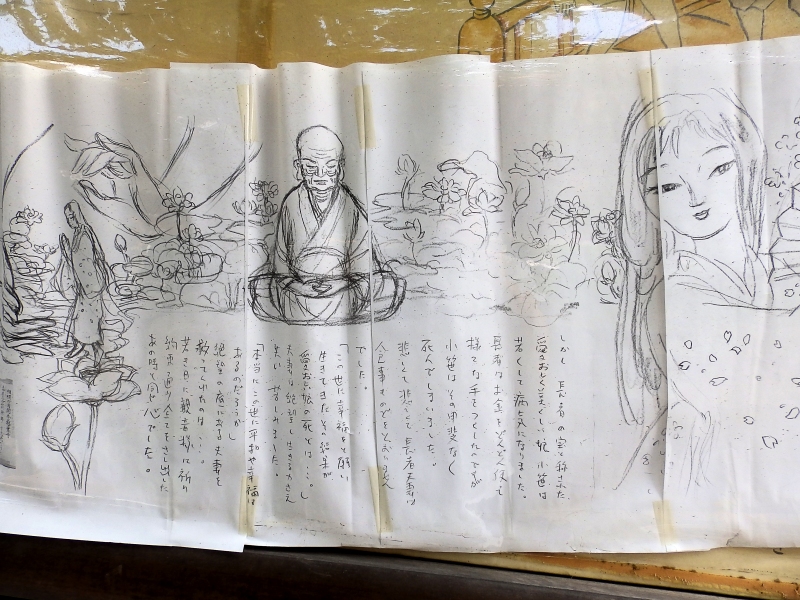 しかし 長者の宝と称された
愛々おしく美くしい娘 小笹は
若くして病気になりました。
長者はお金をどんどん使って
様々な手をつくしたのですが
小笹はその甲斐なく
死んでしまいました。
悲しくて悲しくて長者夫妻は
食事ものどをとおりません
でした。
「この世に幸福をと願い
生きてきたその結果が
愛おしい娘の死とは…。」
夫妻は絶望し生きる力さえ
失い 苦しみました。
「本当にこの世に平和や幸福は
あるのだろうか」
絶望の底にある夫妻を
救ってくれたのは…。
若き日に観音様に祈り
約束通り全てをさし出した
あの時と同じ心でした。